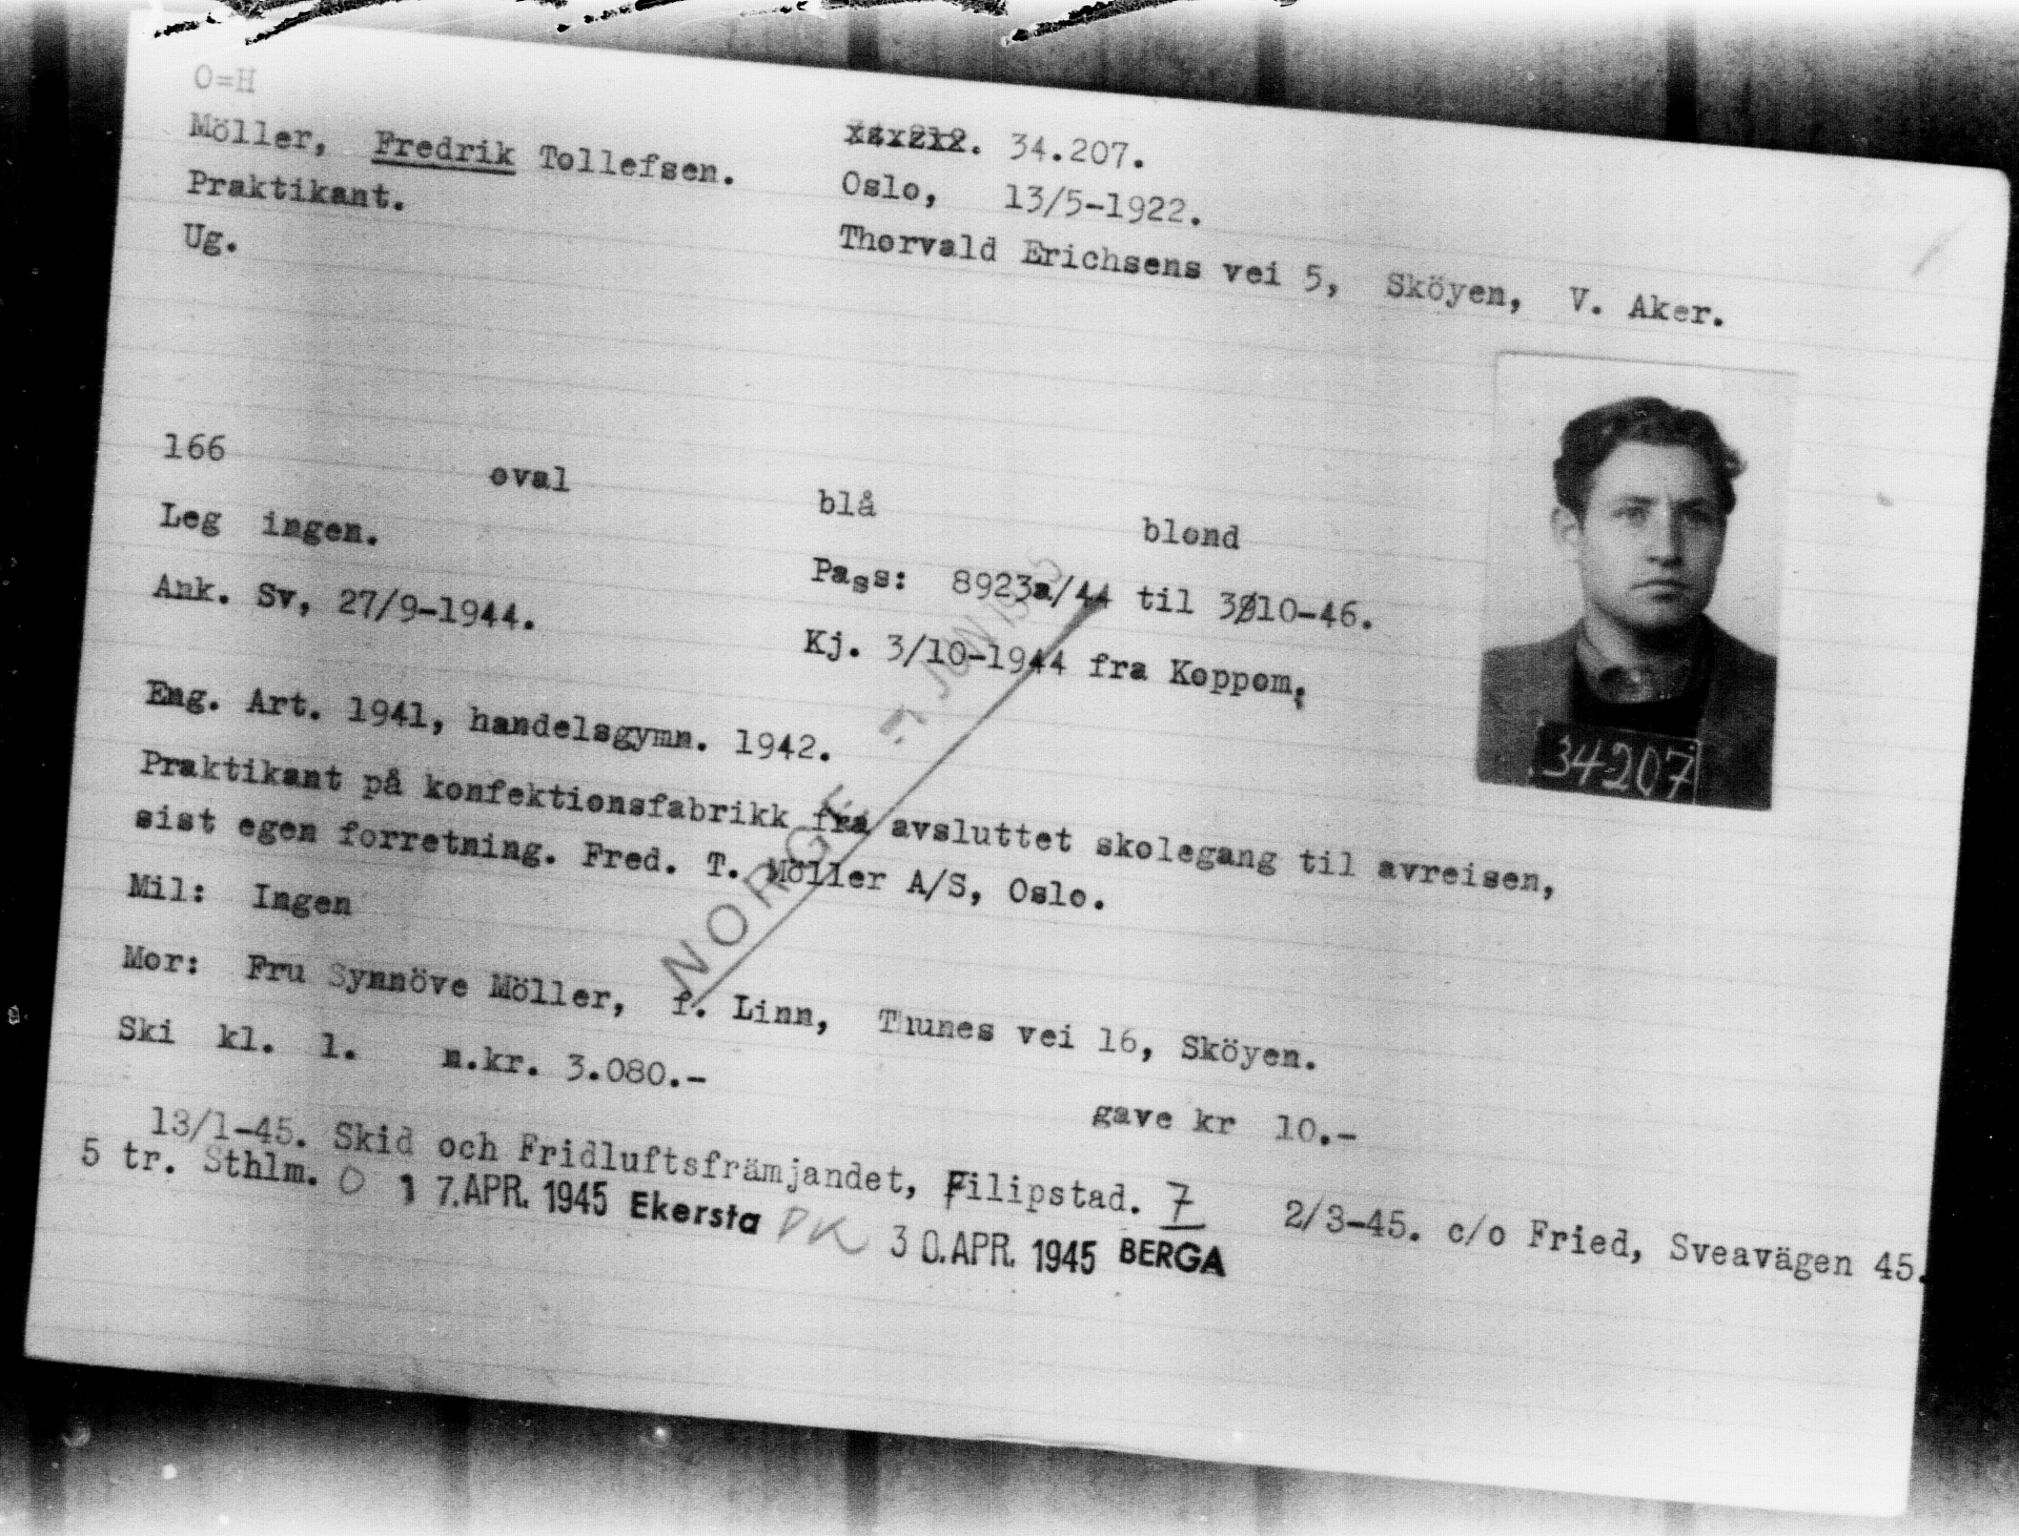 O=H
Möller, Fredrik Tollefsen. 34.207.
Praktikant. Oslo, 13/5-1922.
Ug. Thorvald Erichsens vei 5, Sköyen, V. Aker.
166 oval blå blond
Leg ingen. Pass: 8923a/44 til 3/10-46.
Ank. Sv, 27/9-1944. Kj. 3/10-1944 fra Koppom.
Eng. Art. 1941, handelsgymn. 1942.
Praktikant på konfektionsfabrikk fra avsluttet skolegang til avreisen,
sist egen forretning. Fred. T. Möller A/S, Oslo.
Mil: Ingen
Mor: Fru Synnöve Möller, f. Linn, Thunes vei 16, Sköyen.
Ski kl. 1. n.kr. 3.080.- gave kr 10.-
13/1-45. Skid och Fridluftsfrämjandet, Filipstad. 7 2/3-45. c/o Fried, Sveavägen 45.
5 tr. Sthlm. O 17. APR. 1945 Ekersta PK 30. APR. 1945 BERGA
NORGE
34207